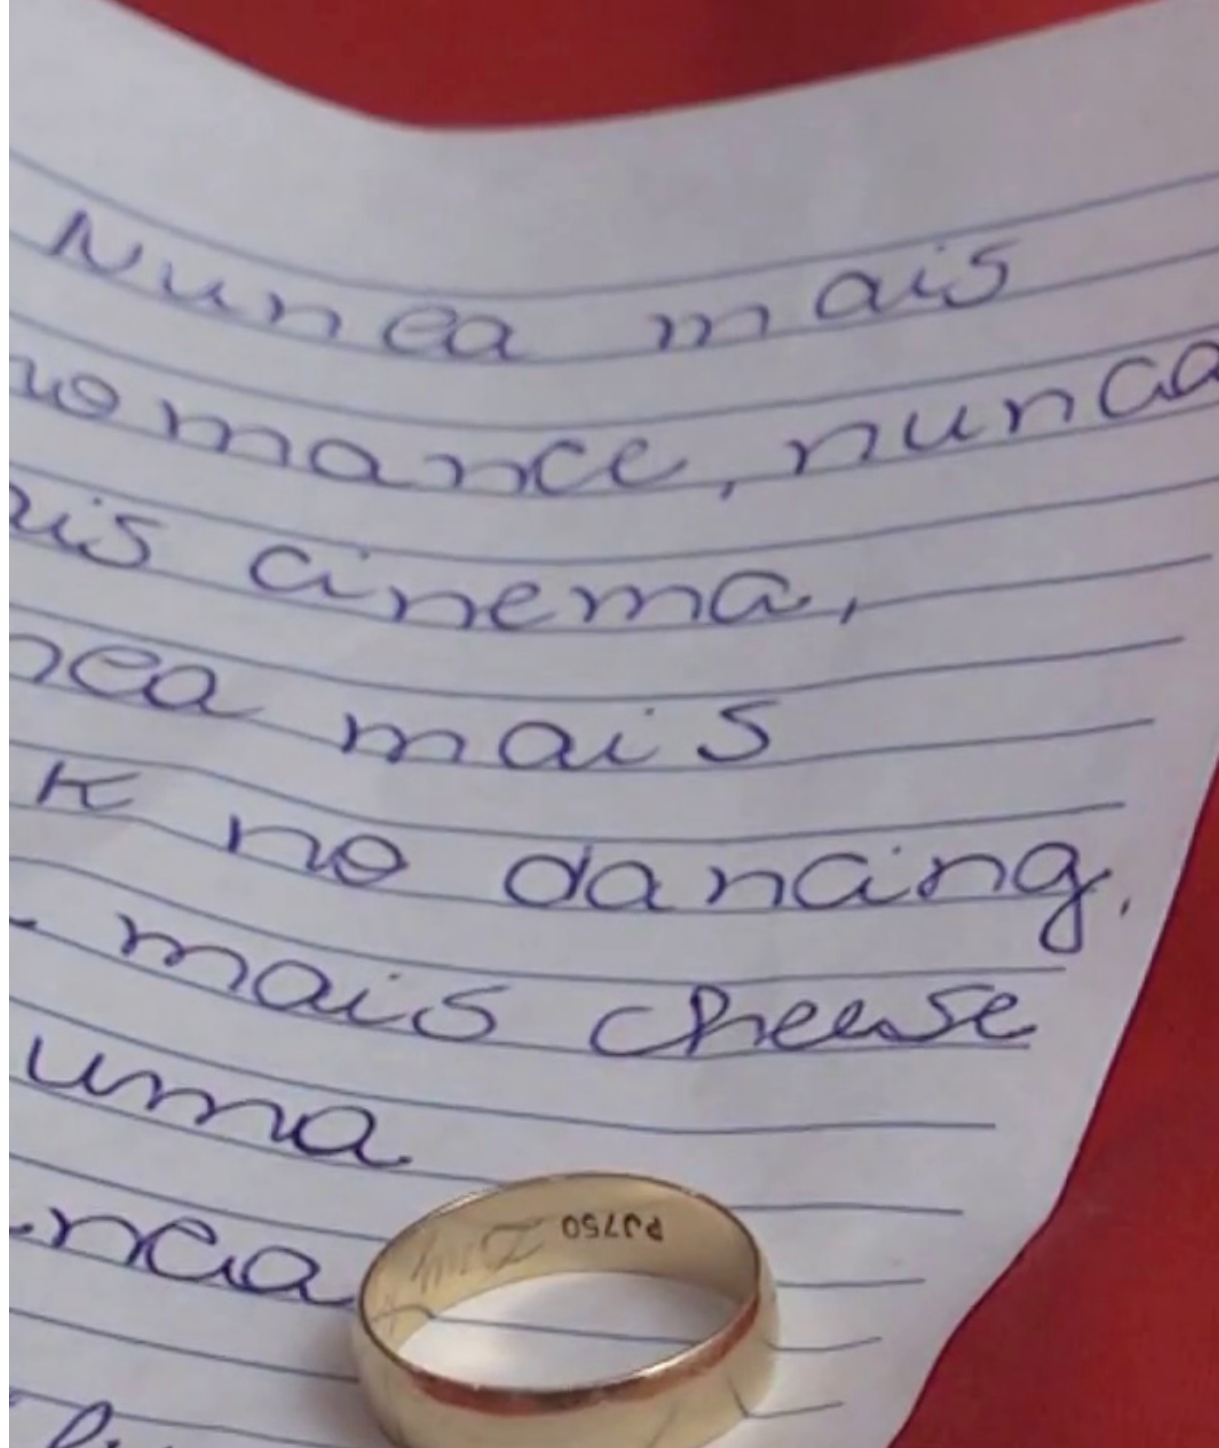 Nunca mais
romance, nunca
ais cinema,
nca mais
k no dancing.
mais cheese
uma
nca
PJ750